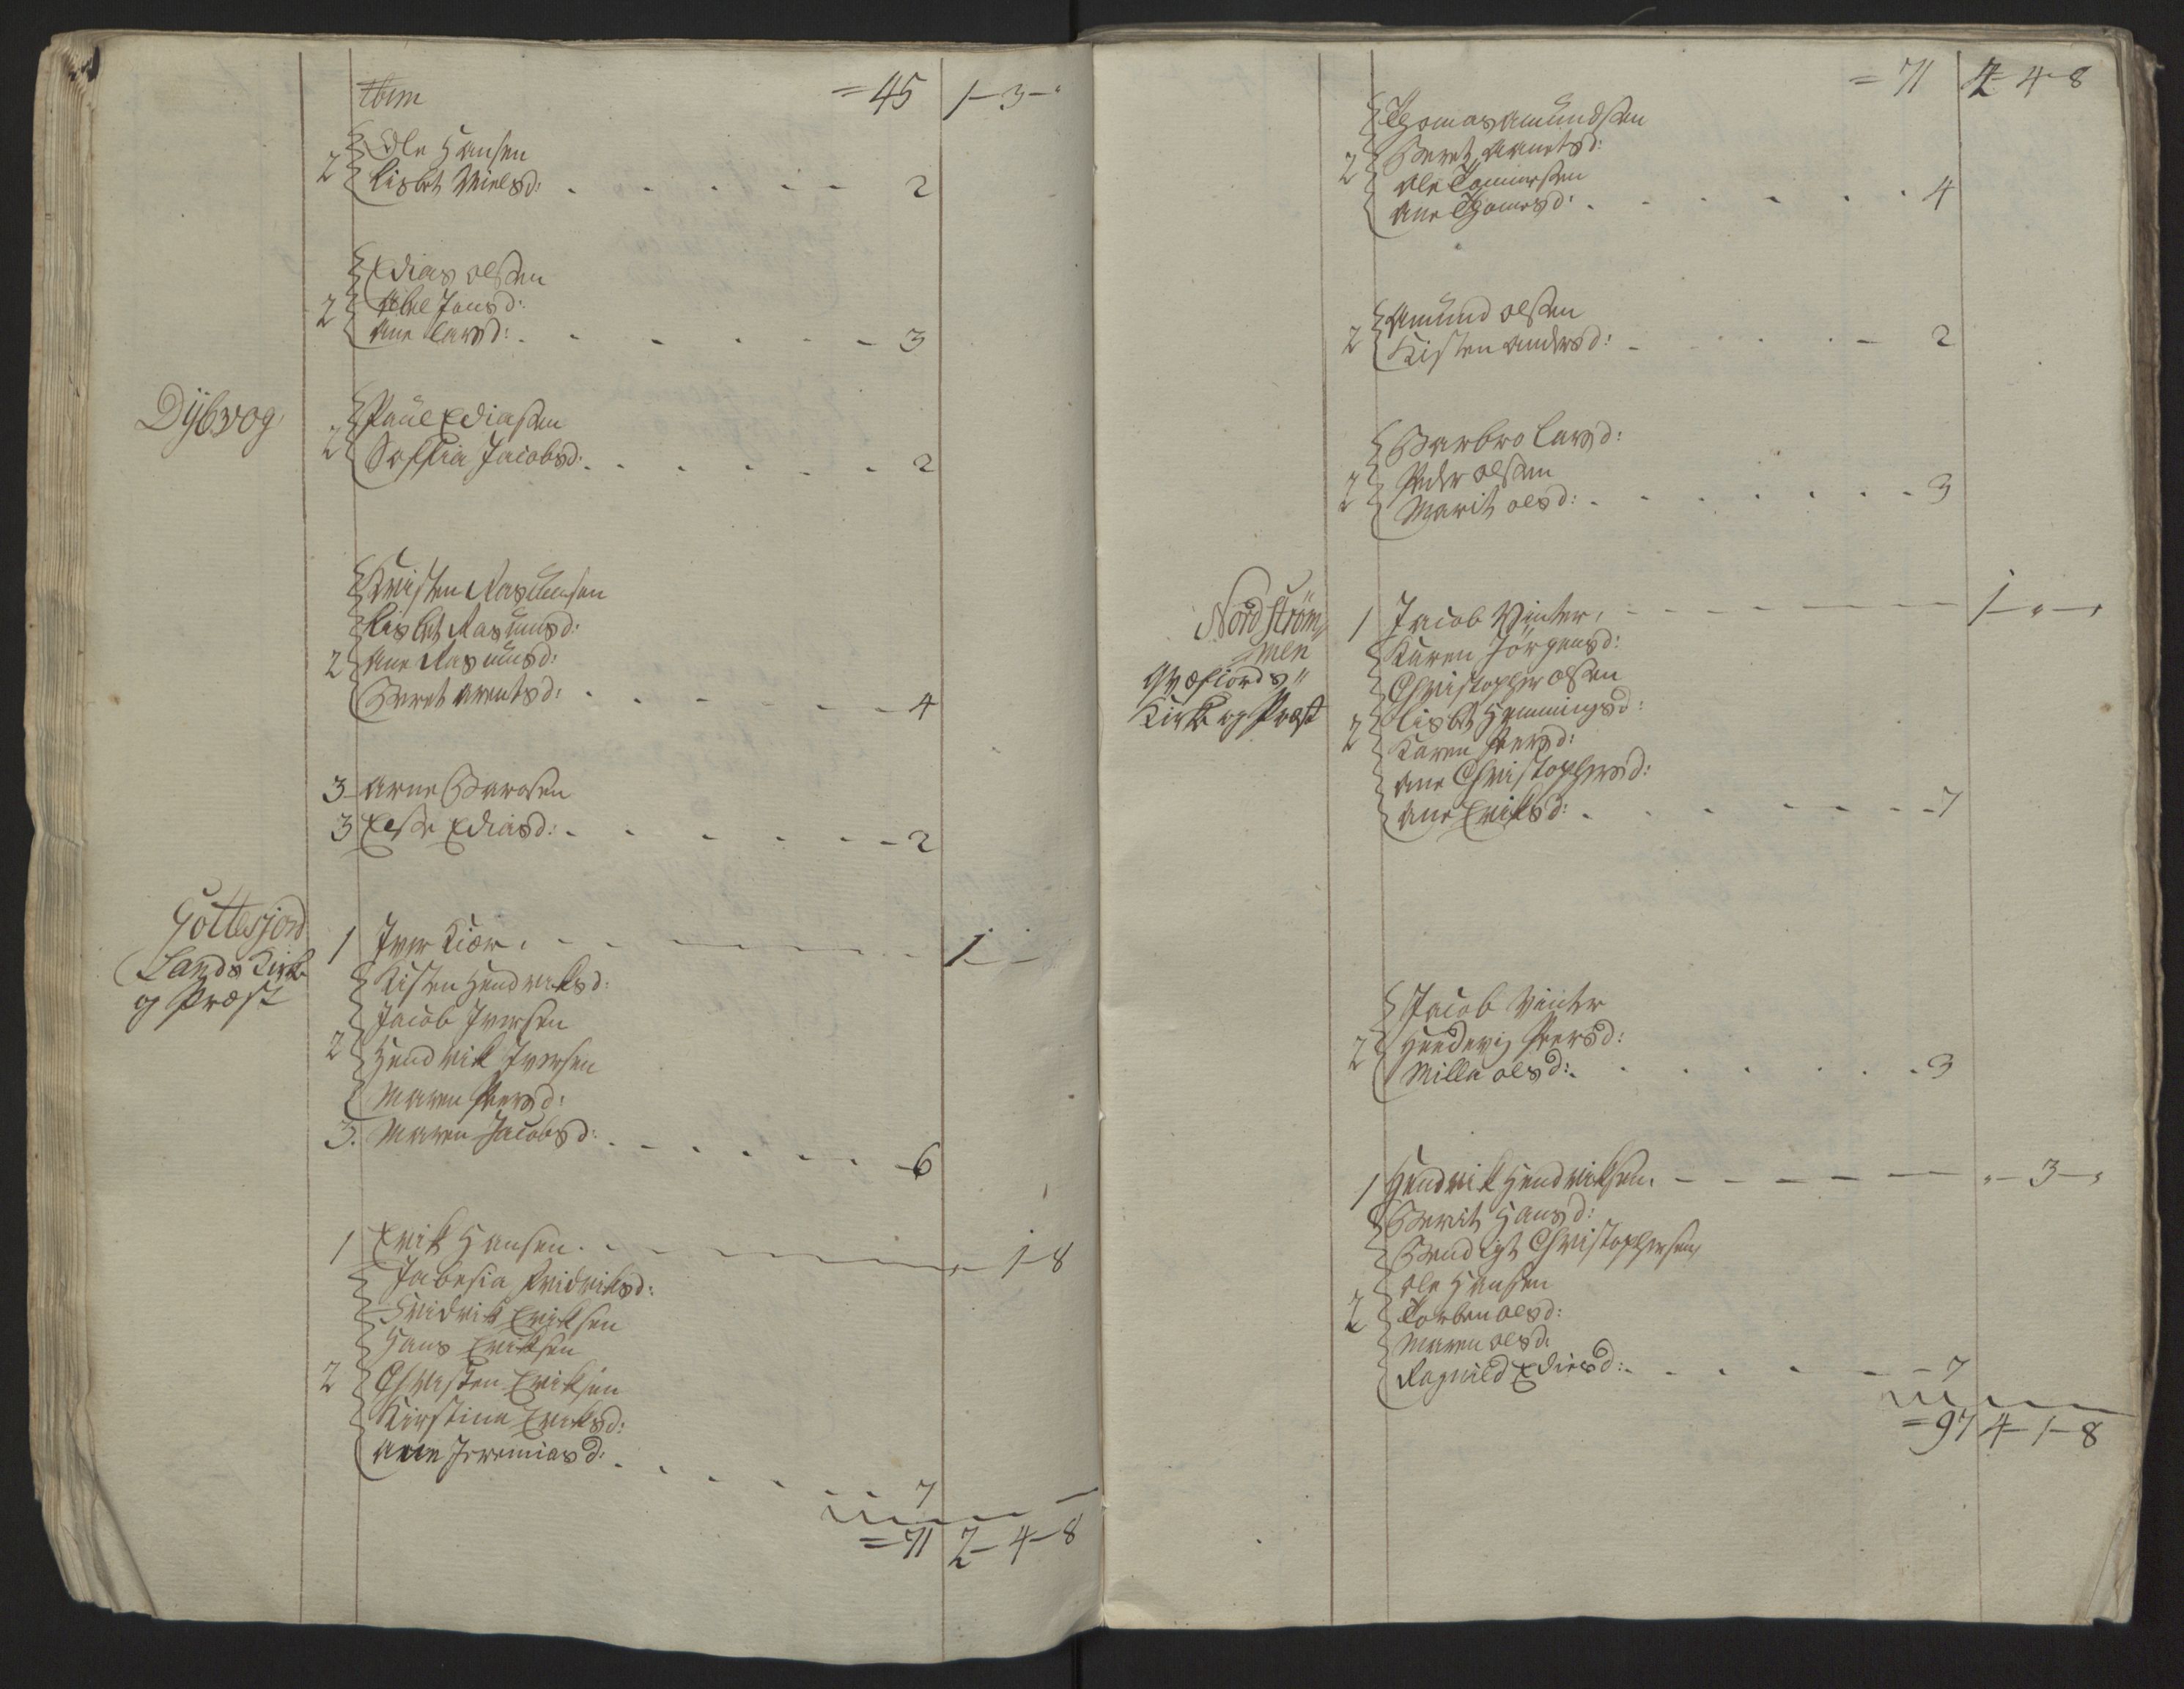 = 45 1-3-"
2 Ole Hansen
Lisbet Nielsd: . . . . - - 2
Edias olsen
2 Abel Jonsd:
Ane Larsd: . - - - - - - 3
Dybvog
2 Paul Ediasen
Soffia Jacobsd: . . . . . - 2
Kristen Rasmusen
Lisbet Rasmusd:
2 Ane Rasmusd:
Beret arentsd: . . - - - - - 4
3 - Arne Barosen
3 Else Ediasd: . - - - - - 2
Gottesjord
Lands Kirke
og Præst
1 Iver Kiær . - - - - 1 - -
Kisten Hendriksd:
Jacob Iversen
2 Hendrik Iversen
Maren Persd:
3. Maren Jacobsd: . - - - - - 6
1 Erik Hansen . - - - - "- 1-8
Fridriksd:
Fridrik Eriksen
Hans Eriksen
2 Christen Eriksen
Kirstine Eriksd:
Ane Jeremiasd: . . - - - - 7
= 71 2-4-8
= 71 2-4-8
Thomas Amundsen
2 Beret arentsd:
Ole Tommesen
Ane Thomesd: . - - - - - 4
Amund olsen
2 Kisten Andersd: - - - - - 2
Barbro Larsd:
2 Peder olsen
Marit olsd: . - - - - - - 3
Nordström
= men
Qvæfiords "
Kirke og Præst
1 Jacob Winter, - - - - - - 1-"-"
Karen Jörgensd:
Christopher olsen
2 Lisbet Hemmingsd:
Karen Persd:
Ane Christophersd:
Ane Eriksd: . - - - - - - 7
Jacob Winter
2 Hendevig Persd:
Milla olsd: . - - - - - 3
1 Hendrik Hendriksen. - - - - - - "-3-"
Berit Hansd:
Bendigt Christophersen
Ole Hansen
2 Torben olsd:
Maren olsd:
Ragnild Ediasd: . - - - - - 7
= 97 4-1-8